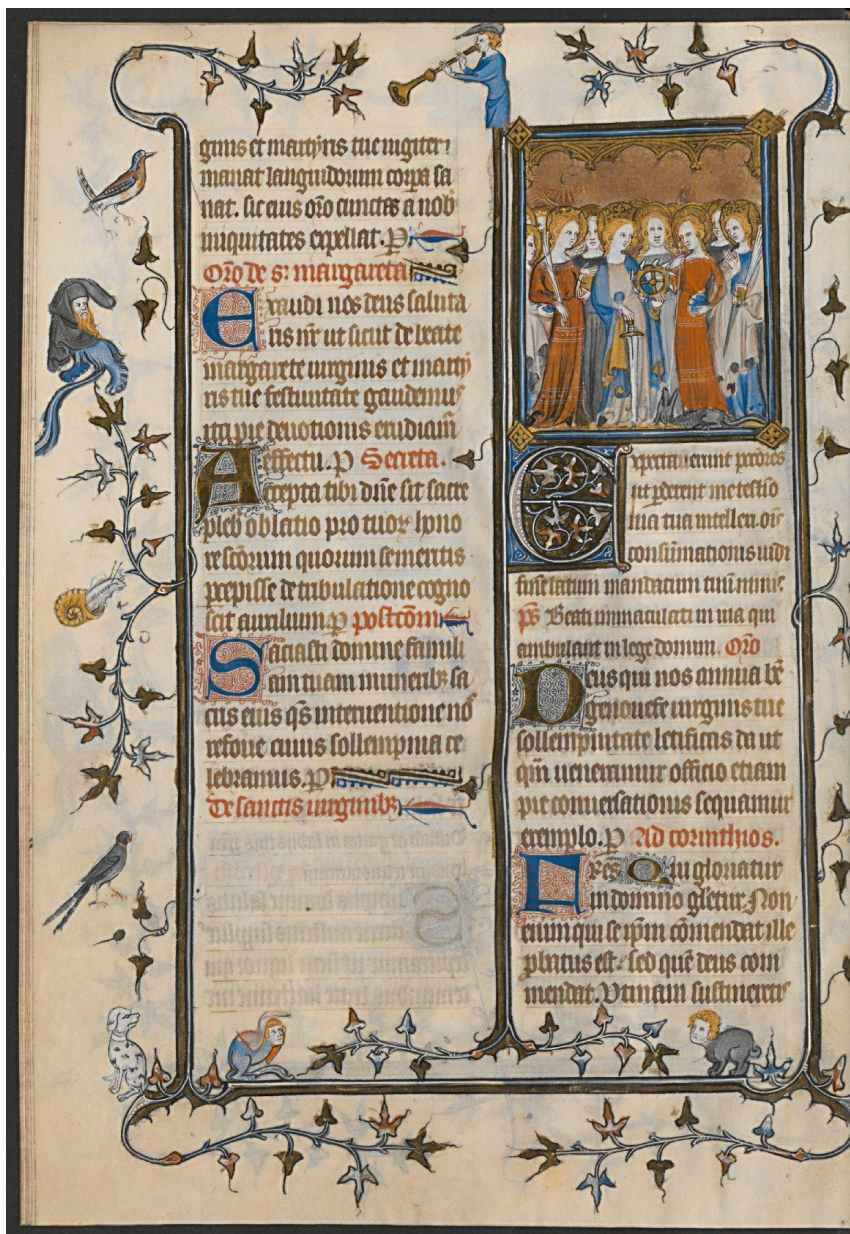 ginis et martyris tue iugiter
manat languidorum corpa sa
nat. sic eius oro cunctas a nob
iniquitates expellat. P
Oro de s. margareta
Exaudi nos deus saluta
ris nr ut sicut de beate
margarete uirginis et marty
ris tue festiuitate gaudemus
ita pie deuotionis erudiam
affectu. P Secreta.
Accepta tibi dne sit sacre
pleb oblatio pro tuoꝝ hono
re scorum quorum se meritis
percepisse de tribulatione cogno
scit auxilium. P postcom
Saciasti domine famili
am tuam munerib sa
cris eius qs interuentione nos
refoue cuius sollempnia ce
lebramus. P
De sanctis uirginib
Expectauerunt pctores
ut perderent me testio
nia tua intellexi ois
consumationis uidi
fine latum mandatum tuum nimis.
ps Beati inmaculati in uia qui
ambulant in lege domini. Oro
Deus qui nos annua be
genouefe uirginis tue
sollempnitate letificas da ut
qm ueneramur officio etiam
pie conuersationis sequamur
exemplo. P Ad corinthios.
Fres Qui gloriatur
in domino gletur Non
enim qui se ipm comendat ille
pbatus est. sed que deus com
mendat. Vtinam sustineretis